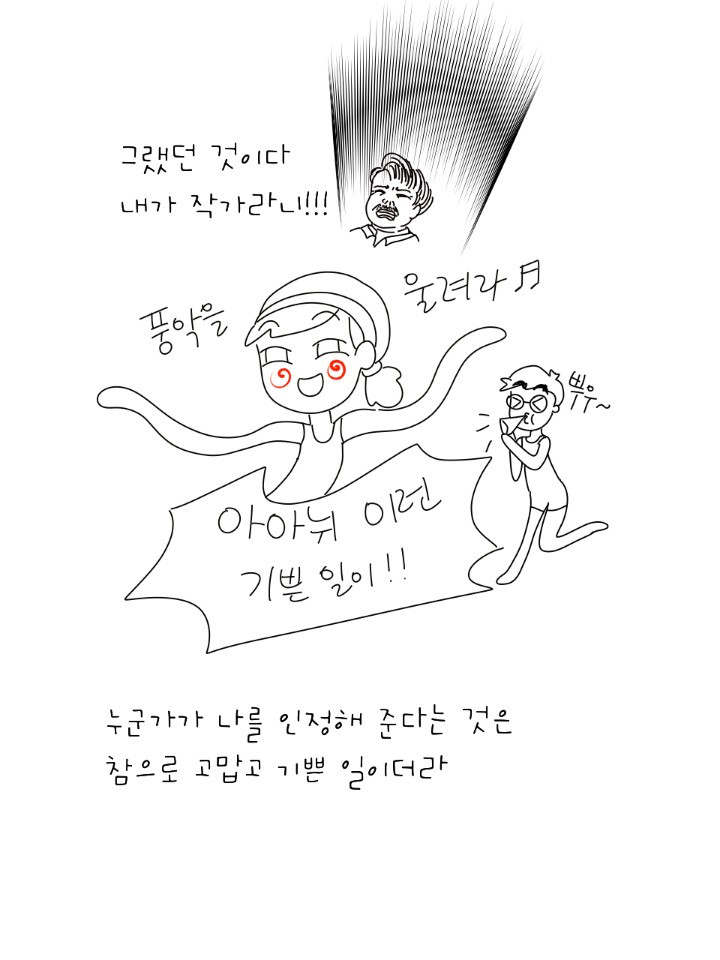 그랬던 것이다
내가 작가라니!!!
풍악을
울려라♬
쀼우~
아아뉘 이런
기쁜 일이!!
누군가가 나를 인정해 준다는 것은
참으로 고맙고 기쁜 일이더라